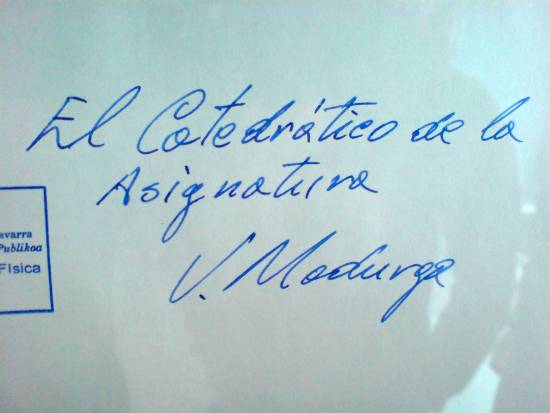 El Catedrático de la
Asignatura
avarra
Publikoa
Física
V. Madurga